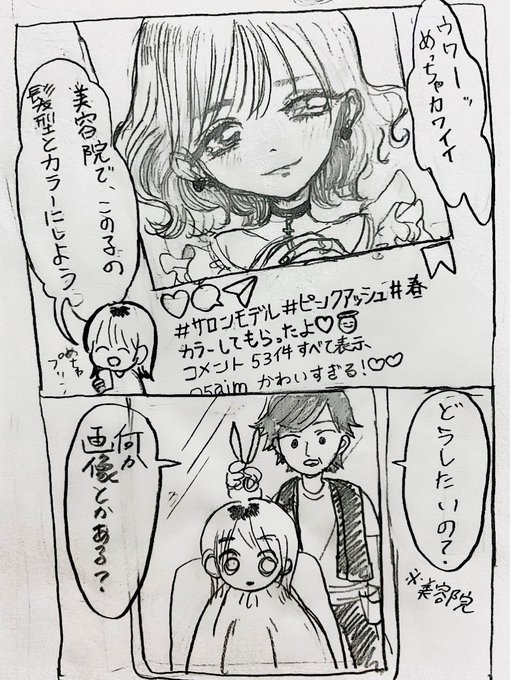 ウワー゛
めっちゃカワイイ
美容院で、この子の
髪型とカラーにしよう
めちゃ
プリン
#サロンモデル#ピンクアッシュ#春
カラーしてもらったよ♡😇
コメント53件すべて表示
05aim かわいすぎる!♡♡
どうしたいの?
※美容院
何か
画像とかある?